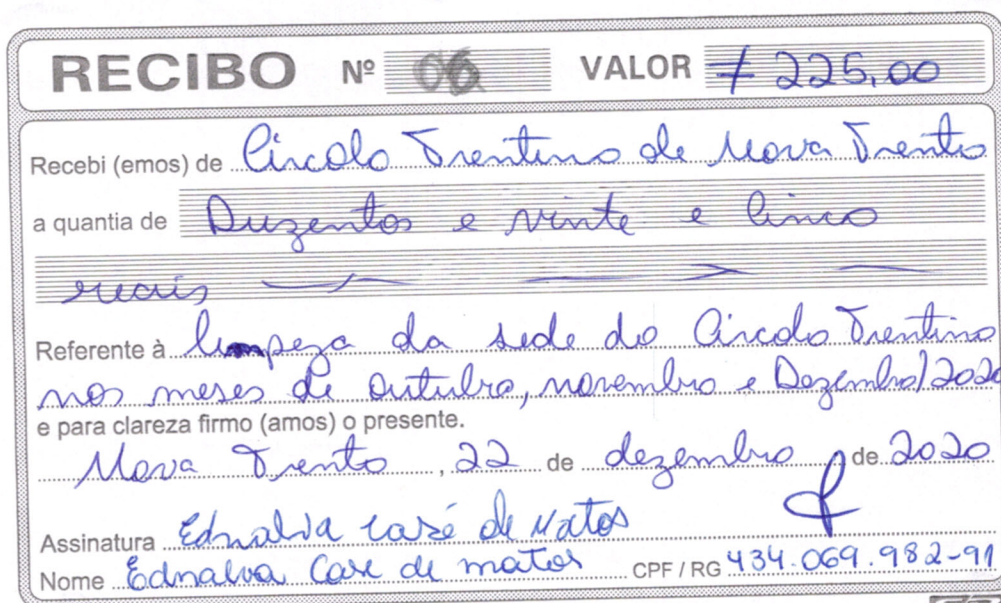 RECIBO Nº 06 VALOR ≠ 225,00
Recebi (emos) de Circolo Trentino de Nova Trento
a quantia de Duzentos e vinte e Cinco
reais
Referente à limpeza da sede do Circolo Trentino
nos meses de outubro, novembro e Dezembro/2020
e para clareza firmo (amos) o presente.
Nova Trento, 22 de dezembro de 2020
Assinatura Ednalva casé de Matos
Nome Ednalva Case de matos CPF / RG 434.069.982-91